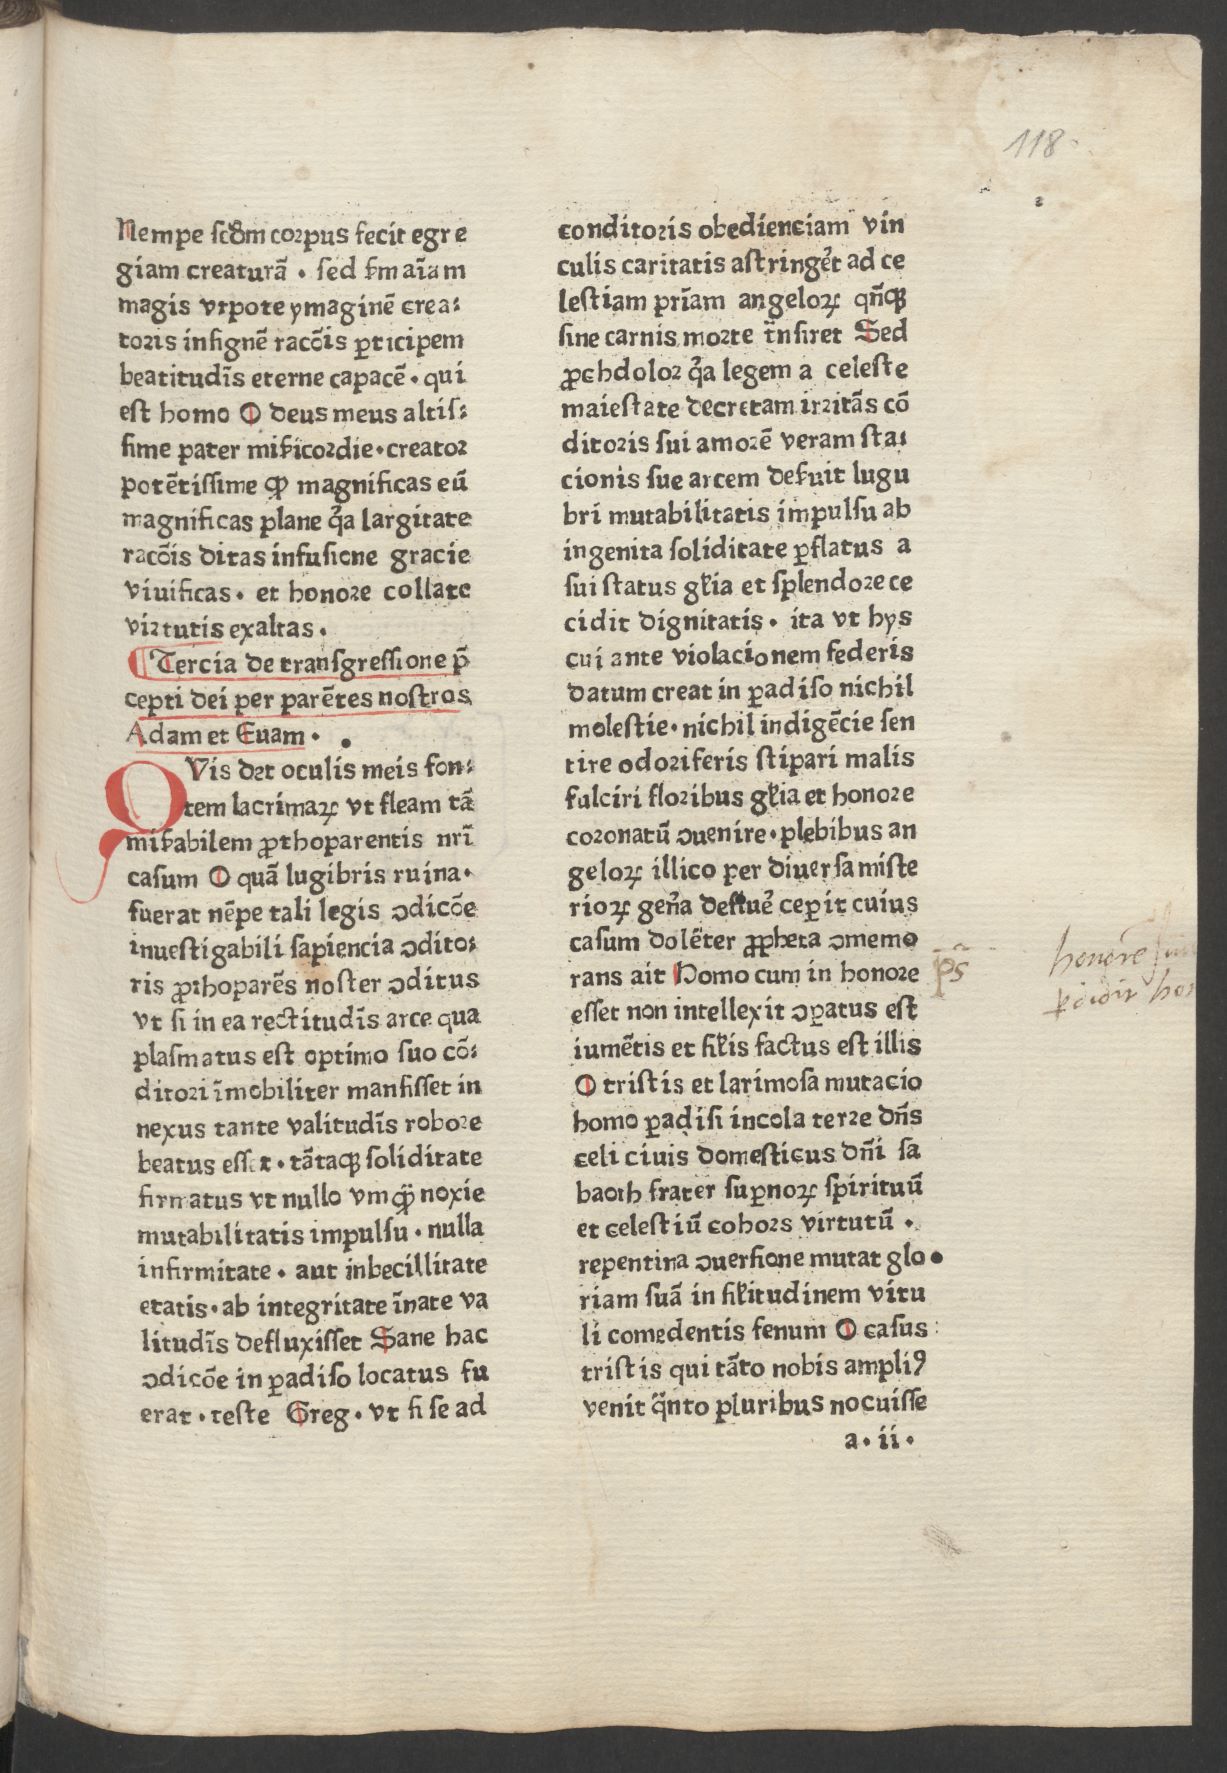 118
Nempe scd̄m corpus fecit egre
giam creaturā · sed ẜm aīam
magis vtpote ymaginē crea⸗
toris insignē racōis ꝑticipem
beatitudīs eterne capacē · qui
est homo O deus meus altis⸗
sime pater miẜicordie · creator
potētissime ꝙ magnificas eū
magnificas plane q̄a largitate
racōis ditas infusione gracie
viuificas · et honore collate
virtutis exaltas ·
Tercia de transgressione p̄
cepti dei per parētes nostros
Adam et Euam ·
QVis det oculis meis fon⸗
tem lacrimaꝝ vt fleam tā
miẜabilem ꝓthoparentis nrī
casum O quā lugibris ruina ·
fuerat nēpe tali legis ↄdicōe
inuestigabili sapiencia ↄdito⸗
ris ꝓthoparēs noster ↄditus
vt si in ea rectitudīs arce qua
plasmatus est optimo suo cō⸗
ditori īmobiliter mansisset in
nexus tante valitudīs robore
beatus esset · tātaqꝫ soliditate
firmatus vt nullo vmq̄ noxie
mutabilitatis impulsu · nulla
infirmitate · aut inbecillitate
etatis · ab integritate īnate va
litudīs defluxisset Sane hac
ↄdicōe in ꝑadiso locatus fu
erat · teste Greg · vt si se ad
conditoris obedienciam vin
culis caritatis astringēt ad ce
lestiam prīam angeloꝝ qn̄qꝫ
sine carnis morte tn̄siret Sed
ꝓchdolor q̄a legem a celeste
maiestate decretam irritās cō
ditoris sui amorē veram sta⸗
cionis sue arcem deẜuit lugu
bri mutabilitatis impulsu ab
ingenita soliditate ꝑflatus a
sui status gl̄ia et splendore ce
cidit dignitatis · ita vt hys
cui ante violacionem federis
datum creat in ꝑadiso nichil
molestie · nichil indigēcie sen
tire odoriferis stipari malis
fulciri floribus gl̄ia et honore
coronatū ↄuenire · plebibus an
geloꝝ illico per diuersa miste
rioꝝ gen̄a defluē ceꝑit cuius
casum dolēter ꝓpheta ↄmemo
rans ait Homo cum in honore
esset non intellexit ↄꝑatus est
iumētis et sil̄is factus est illis
O tristis et larimosa mutacio
homo ꝑadisi incola terre dn̄s
celi ciuis domesticus dn̄i sa
baoth frater suꝑnoꝝ spirituū
et celestiū cohors virtutū ·
repentina ↄuersione mutat glo
riam suā in sil̄itudinem vitu
li comedentis fenum O casus
tristis qui tāto nobis ampliꝰ
venit q̄nto pluribus nocuisse
a · ii ·
p̄s
honorē